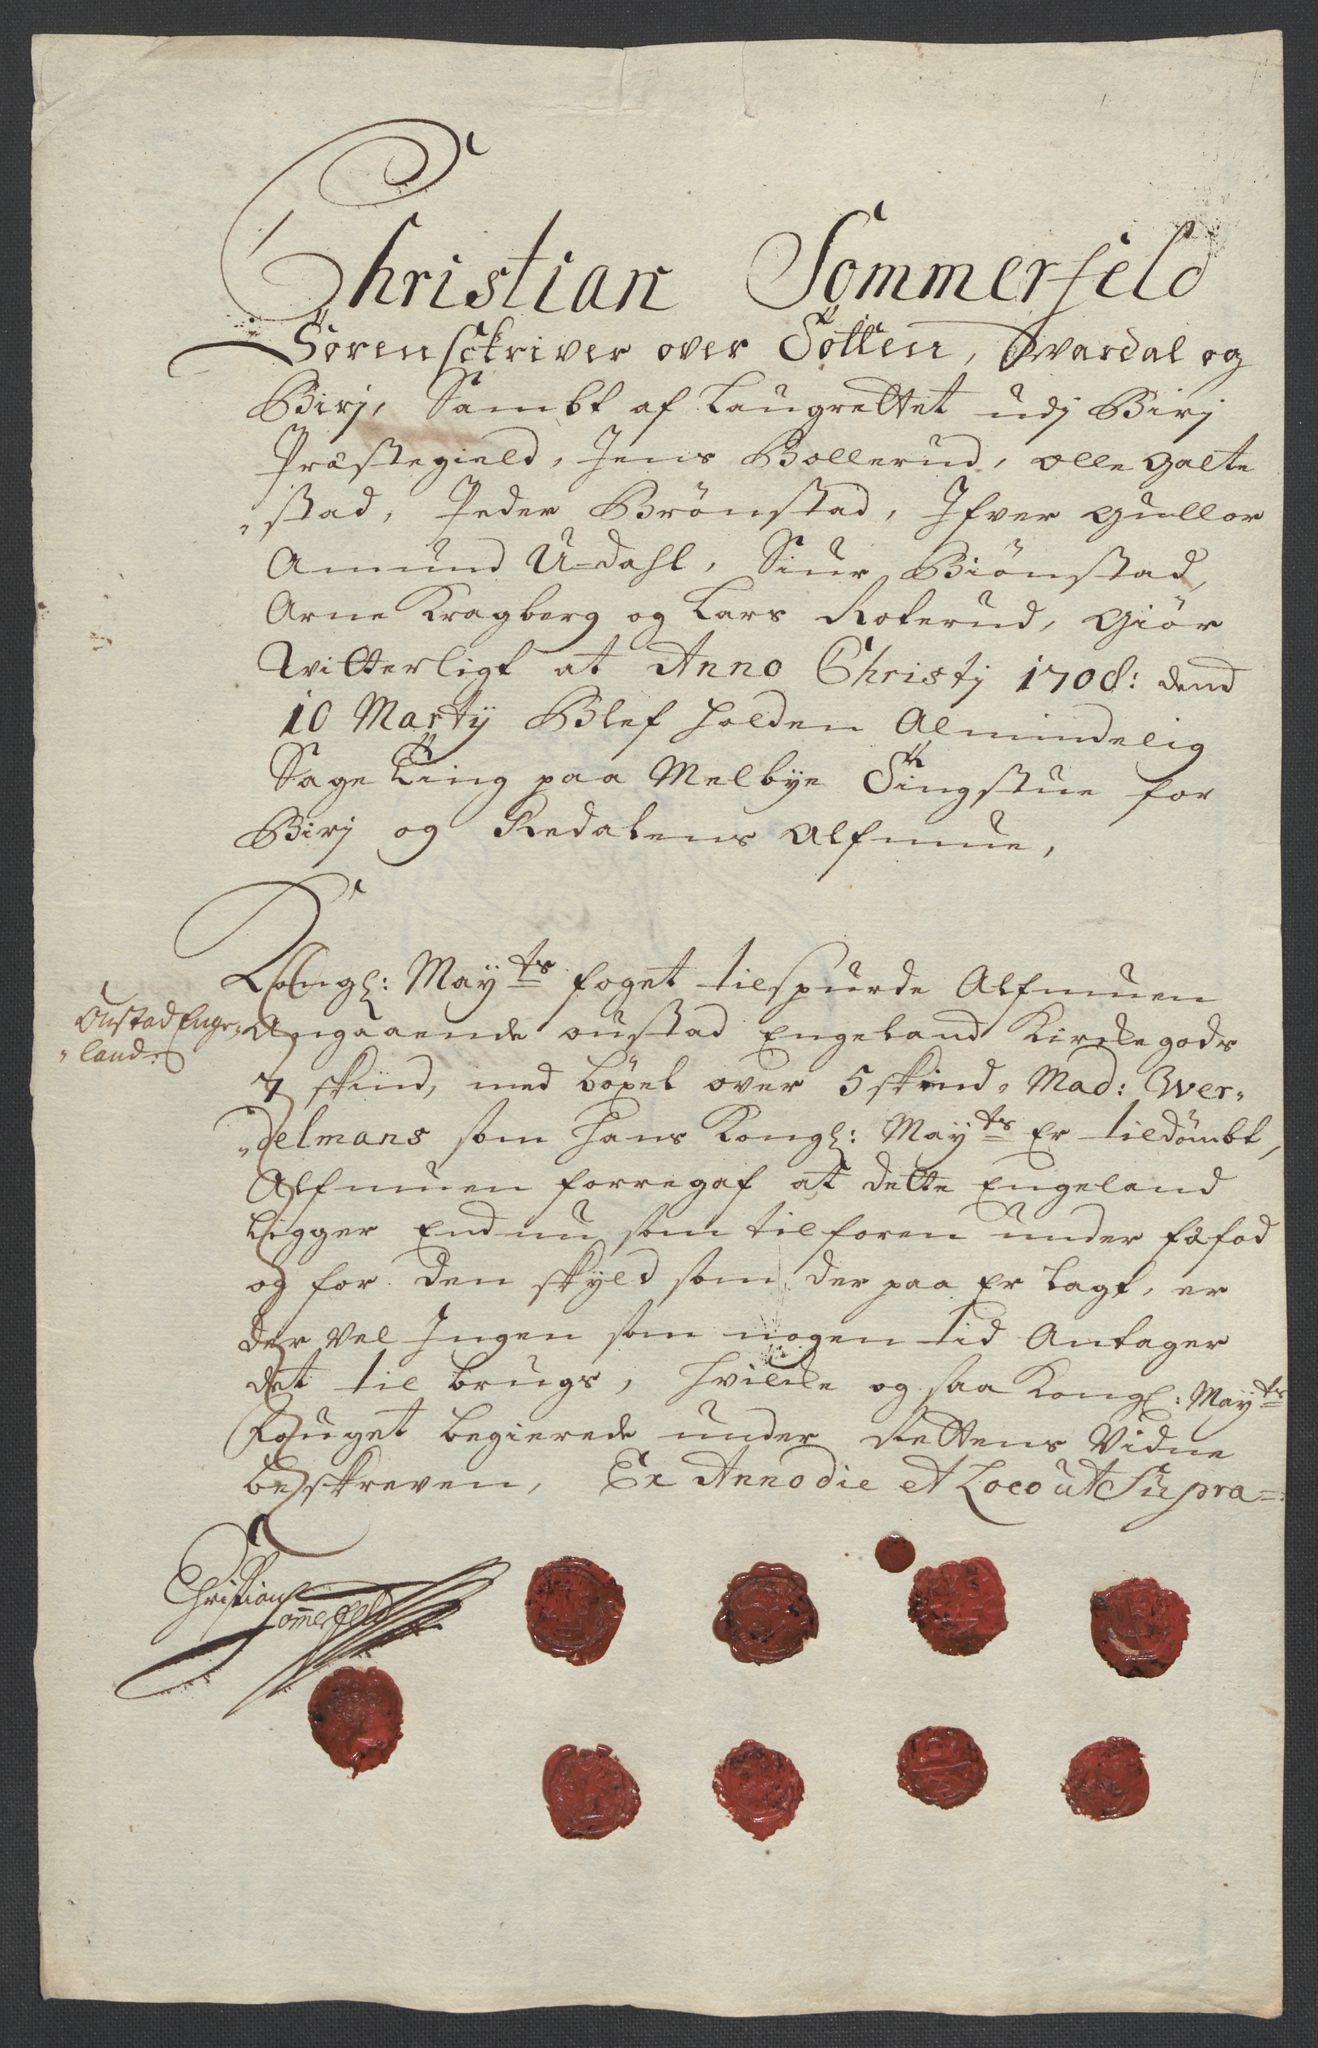 Christian Sommerfeld
Sorenschriver over Totten, Wardal og
Birj, Sambt af Laugrettet udj Birj
Præstegield, Jens Bollerud, Olle Galte
„stad, Peder Brönstad, Ifver Gullor
Amund U-dahl, Siur Biönstad,
Arne Kragberg og Lars Roterud, Giör
Witterligt at Anno Christj 1708: dend
10 Martij Blef holden Almindelig
Sage Ting paa Melbye Tingstue for
Birj og Redalens Alfmue,
Kongl: Mayts foget tilspurde Alfmuen
Oustad Enge„
„land
Angaaende Oustad Engeland Kirkegods
7 skind, med böxel over 5 skind, Mad: Wer„
„delmans som hans Kongl: Mayts Er tildömbt,
Alfmuen forregaf at dette Engeland
ligger End nu som tilforen under fæfod
og for den skyld som der paa Er lagt, er
der vel Ingen som nogen tid Antager
det til brugs, hvilke og saa Kongl: Mayts
Fouget begierede under Rettens Vidne
beskreven, Ex Anno die et Loco ut Supra
Christian Sommerfeld